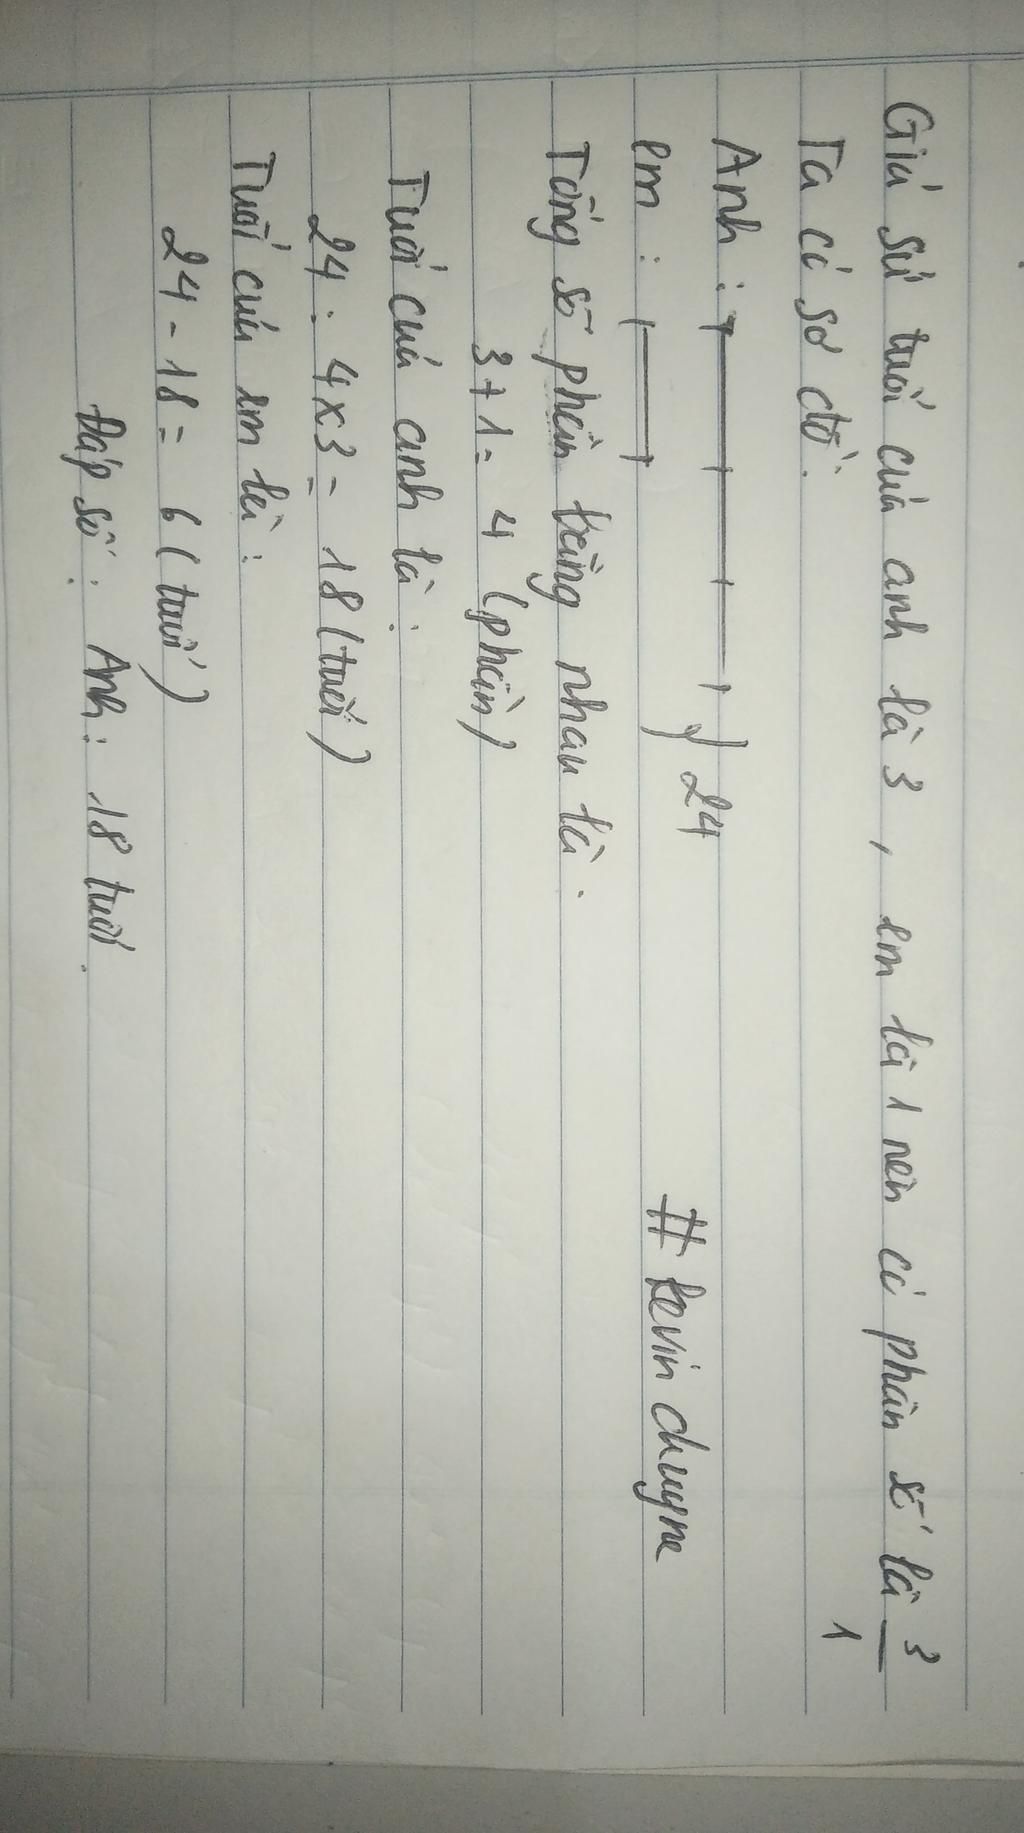 Giả sử tuổi của anh là 3, em là 1 nên có phân số là 3/1
Ta có sơ đồ:
Anh:
em:
} 24
# kevin chuyne
Tổng số phần bằng nhau là:
3+1= 4 (phần)
Tuổi của anh là:
24: 4x3= 18 (tuổi)
Tuổi của em là:
24-18= 6 (tuổi)
Đáp số: Anh: 18 tuổi.